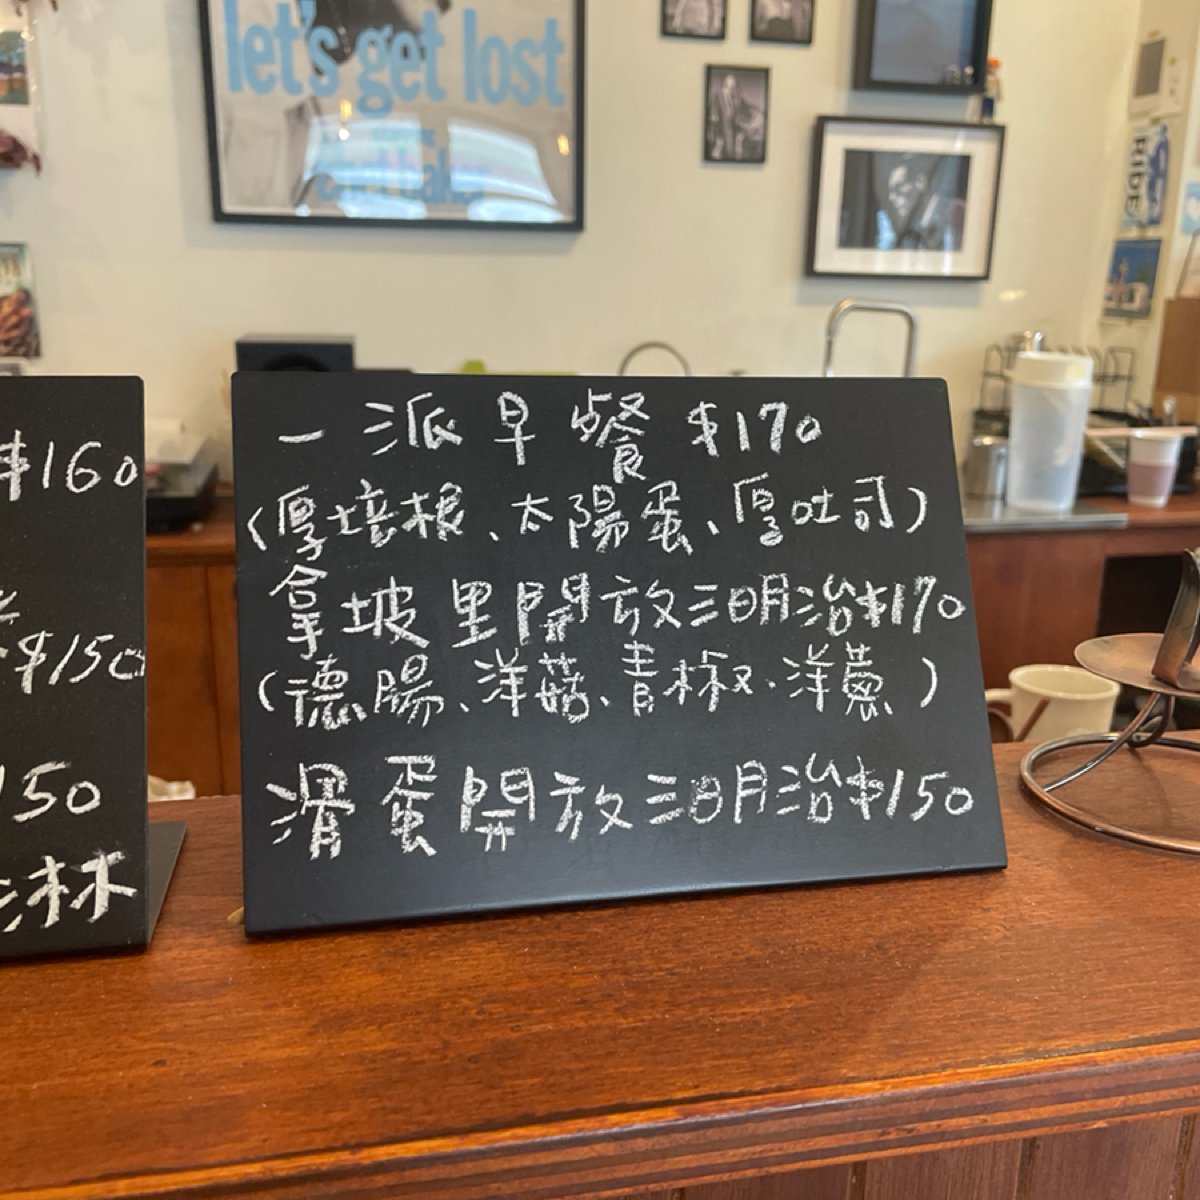 let's get lost
RIDE
$160
$150
150
林
一派早餐 $170
(厚培根、太陽蛋、厚吐司)
拿坡里開放三明治$170
(德腸、洋菇、青椒、洋蔥)
滑蛋開放三明治$150